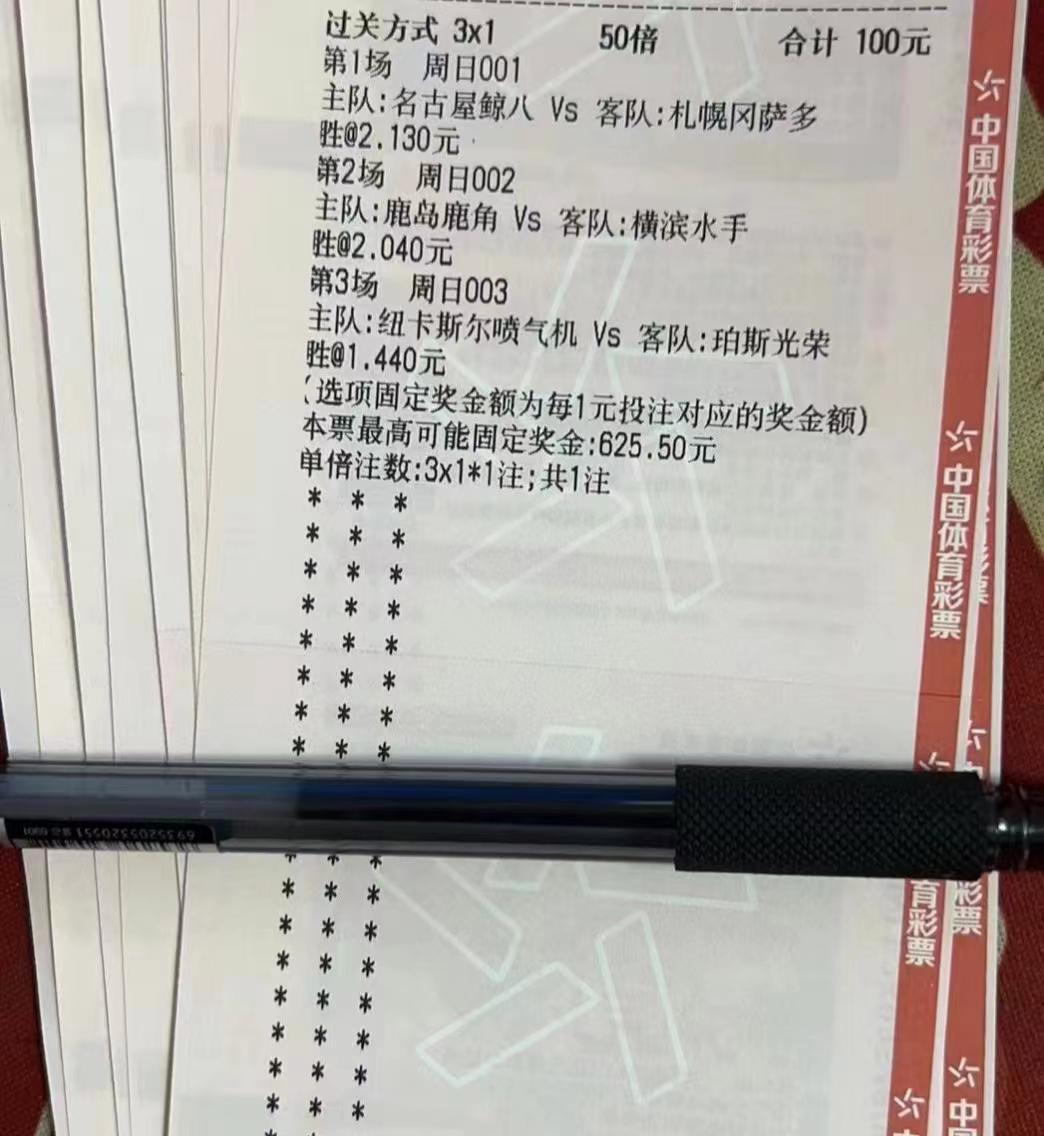 过关方式 3x1 50倍 合计 100元
第1场 周日001
主队:名古屋鲸八 Vs 客队:札幌冈萨多
胜@2.130元
第2场 周日002
主队:鹿岛鹿角 Vs 客队:横滨水手
胜@2.040元
第3场 周日003
主队:纽卡斯尔喷气机 Vs 客队:珀斯光荣
胜@1.440元
(选项固定奖金额为每1元投注对应的奖金额)
本票最高可能固定奖金:625.50元
单倍注数:3x1*1注;共1注
* * *
* * *
* * *
* * *
* * *
* * *
* * *
* * *
* * *
* * *
* * *
* * *
* * *
* * *
* * *
* * *
中国体育彩票
中国体育彩票
育彩票
彩票
中
中国
6935205320551